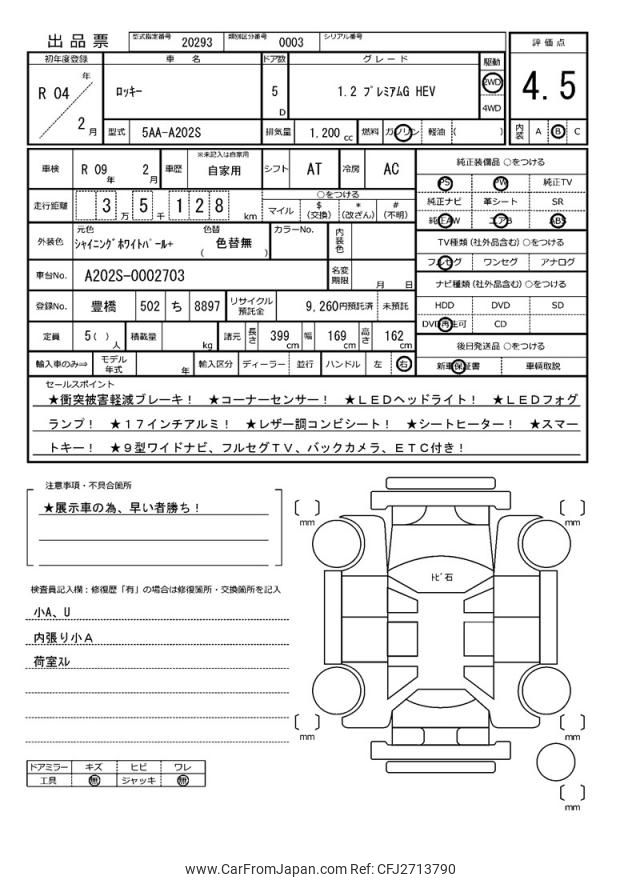 出品票 型式指定番号 20293 類別区分番号 0003 シリアル番号
評価点
4.5
内装 A B C
初年度登録 車名 ドア数 グレード 駆動
R 04 年 2 月 ロッキー 5 D 1.2 プレミアムG HEV 2WD 4WD
型式 5AA-A202S 排気量 1,200 cc 燃料 ガソリン 軽油 ( )
車検 R 09 年 2 月 車歴 ※未記入は自家用 自家用 シフト AT 冷房 AC
走行距離 3 万 5 千 1 2 8 km
○をつける
マイル $(交換) *(改ざん) #(不明)
外装色 元色 シャイニングホワイトパール+ 色替 ( 色替無 ) カラーNo. 内装色
車台No. A202S-0002703 名変期限 月 日
登録No. 豊橋 502 ち 8897 リサイクル預託金 9,260円預託済 未預託
定員 5( )人 積載量 kg 諸元 長さ 399 cm 幅 169 cm 高さ 162 cm
輸入車のみ⇒ モデル年式 年 輸入区分 ディーラー 並行 ハンドル 左 右
純正装備品 ○をつける
PS PW 純正TV
純正ナビ 革シート SR
純正AW エアB ABS
TV種類(社外品含む)○をつける
フルセグ ワンセグ アナログ
ナビ種類(社外品含む)○をつける
HDD DVD SD
DVD再生可 CD
後日発送品 ○をつける
新車保証書 車輌取説
セールスポイント
★衝突被害軽減ブレーキ! ★コーナーセンサー! ★LEDヘッドライト! ★LEDフォグ
ランプ! ★17インチアルミ! ★レザー調コンビシート! ★シートヒーター! ★スマー
トキー! ★9型ワイドナビ、フルセグTV、バックカメラ、ETC付き!
注意事項・不具合箇所
★展示車の為、早い者勝ち!
検査員記入欄:修復歴「有」の場合は修復箇所・交換箇所を記入
小A、U
内張り小A
荷室スレ
ドアミラー キズ ヒビ ワレ
工具 無 ジャッキ 無
mm
mm
トビ石
mm
mm
mm
www.CarFromJapan.com Ref: CFJ2713790